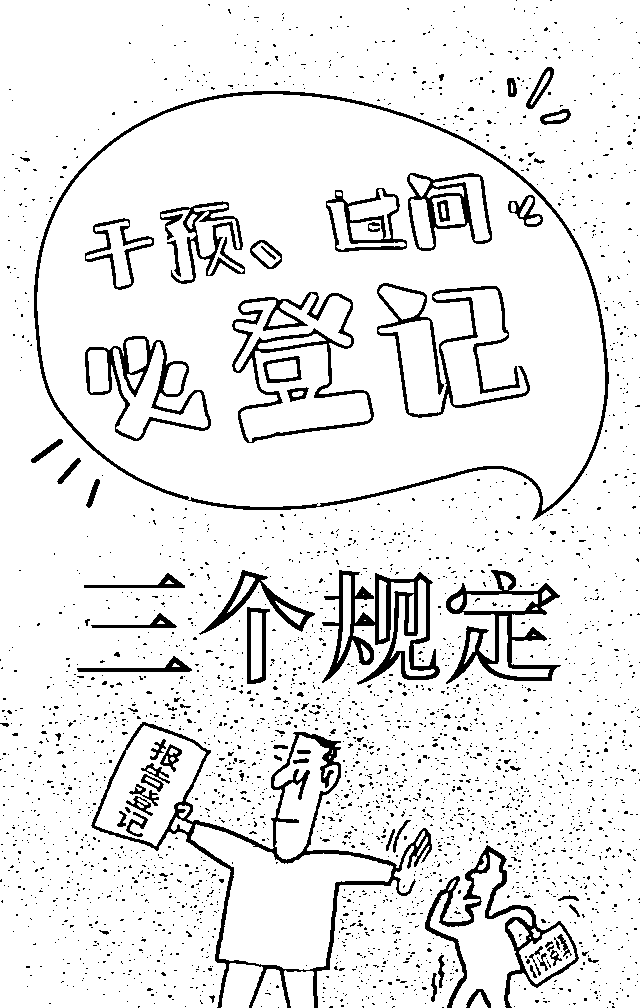 干预、过问
必登记
三个规定
报告登记
打听案情